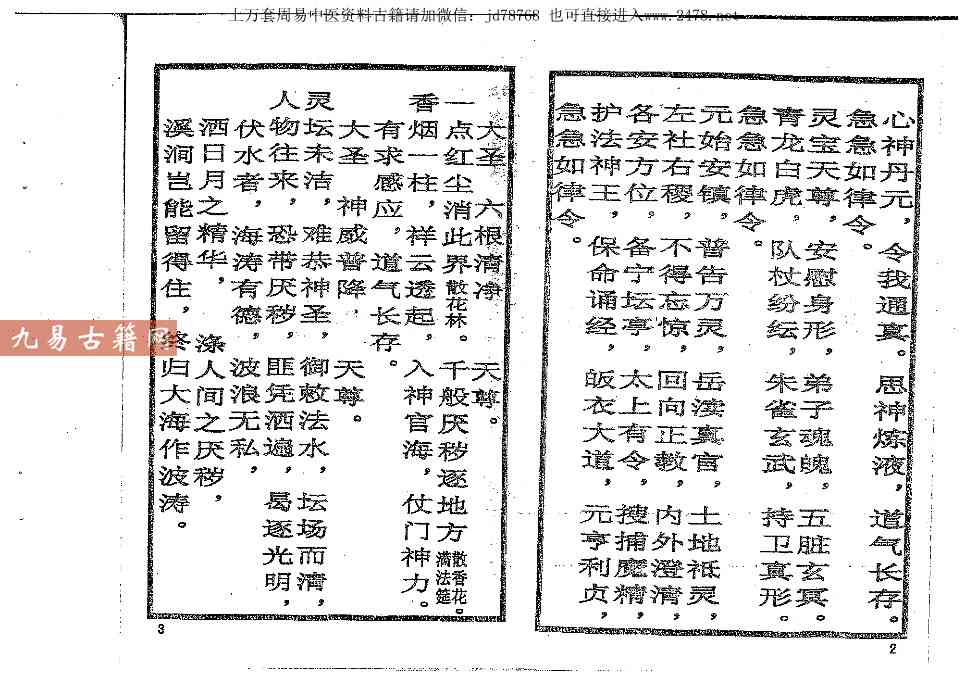 上万套周易中医资料古籍请加微信：jd78768 也可直接进入www.2478.net
心神丹元，令我通真。思神炼液，道气长存。
急急如律令。
灵宝天尊，安慰身形，弟子魂魄，五脏玄冥。
青龙白虎。队杖纷纭，朱雀玄武，持卫真形。
急急如律令。
元始安镇，普告万灵，岳渎真官，土地祇灵，
左社右稷，不得忘惊，回向正教，内外澄清，
各安方位，备宁坛亭，太上有令，搜捕魔精，
护法神王，保命诵经，皈衣大道，元亨利贞，
急急如律令。
2
大圣 六根清净 天尊。
一点红尘消此界散花林。千般厌秽逐地方散香花。满法筵
香烟一柱，祥云透起，入神官海，仗门神力。
有求感应，道气长存。
大圣 神威普降，天尊。
灵坛未洁，难恭神圣，御敕法水，坛场而清，
人物往来，恐带厌秽，匪凭洒遍，曷逐光明，
伏水者，海涛有德，波浪无私，
洒日月之精华，涤人间之厌秽，
溪涧岂能留得住，终归大海作波涛。
3
九易古籍网